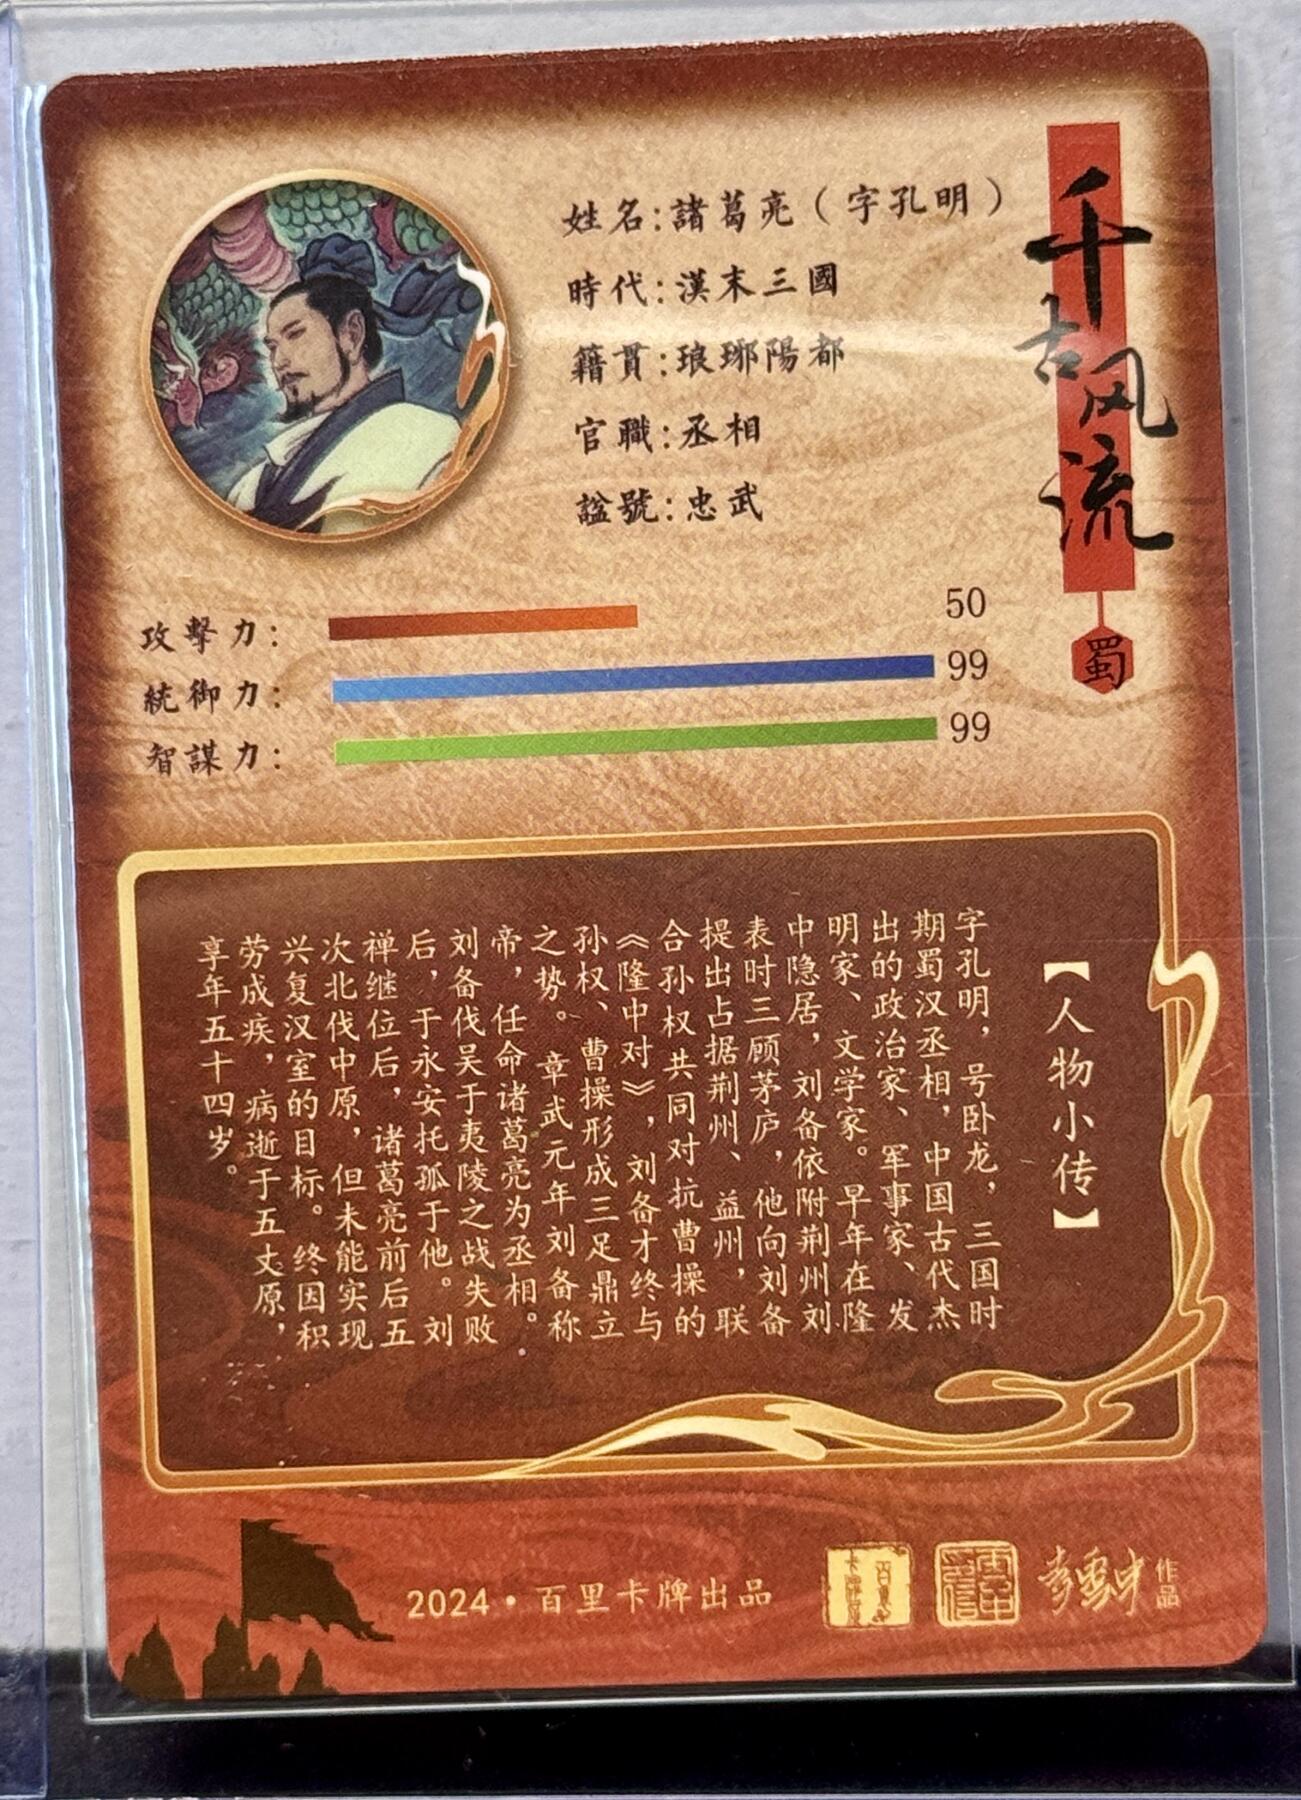 姓名:諸葛亮（字孔明）
時代:漢末三國
籍貫:琅琊陽都
官職:丞相
諡號:忠武
千古风流
蜀
攻擊力: 50
統御力: 99
智謀力: 99
【人物小传】
字孔明，号卧龙，三国时
期蜀汉丞相，中国古代杰
出的政治家、军事家、发
明家、文学家。早年在隆
中隐居，刘备依附荆州刘
表时三顾茅庐，他向刘备
提出占据荆州、益州，联
合孙权共同对抗曹操的
《隆中对》，刘备才终与
孙权、曹操形成三足鼎立
之势。章武元年刘备称
帝，任命诸葛亮为丞相。
刘备伐吴于夷陵之战失败
后，于永安托孤于他。刘
禅继位后，诸葛亮前后五
次北伐中原，但未能实现
兴复汉室的目标。终因积
劳成疾，病逝于五丈原，
享年五十四岁。
2024·百里卡牌出品
作品